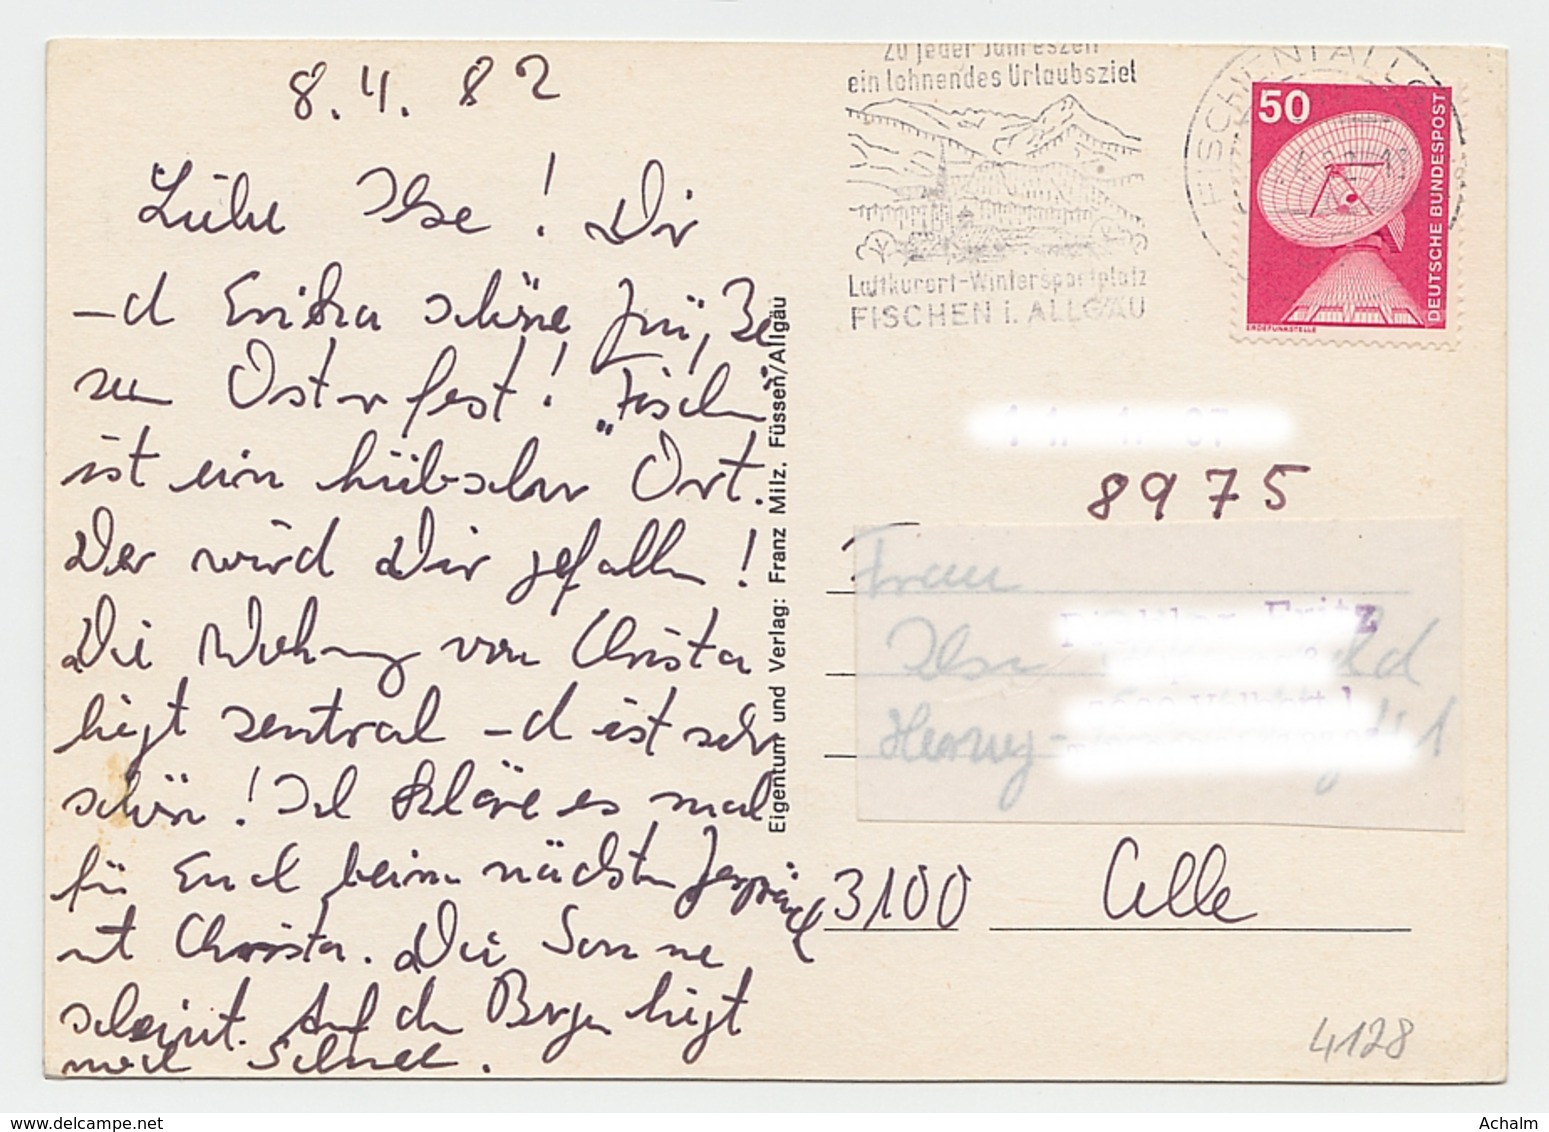 8.4.82
Liebe Ilse! Dir
-d Erika schöne Grüße
zum Osterfest! "Fischen"
ist ein hübscher Ort.
Der wird Dir gefallen!
Die Wohnung von Christa
liegt zentral -d ist sehr
schön! Ich kläre es mal
für Euch beim nächsten Gespräch
mit Christa. Die Sonne
scheint. Auf den Bergen liegt
noch Schnee.
Eigentum und Verlag: Franz Milz, Füssen/Allgäu
Zu jeder Jahreszeit
ein lohnendes Urlaubsziel
Luftkurort-Wintersportplatz
FISCHEN i. ALLGÄU
FISCHEN I ALLG
50
DEUTSCHE BUNDESPOST
ERDEFUNKSTELLE
8975
Frau
Ilse
Fritz
3100 Celle
4128
Achalm